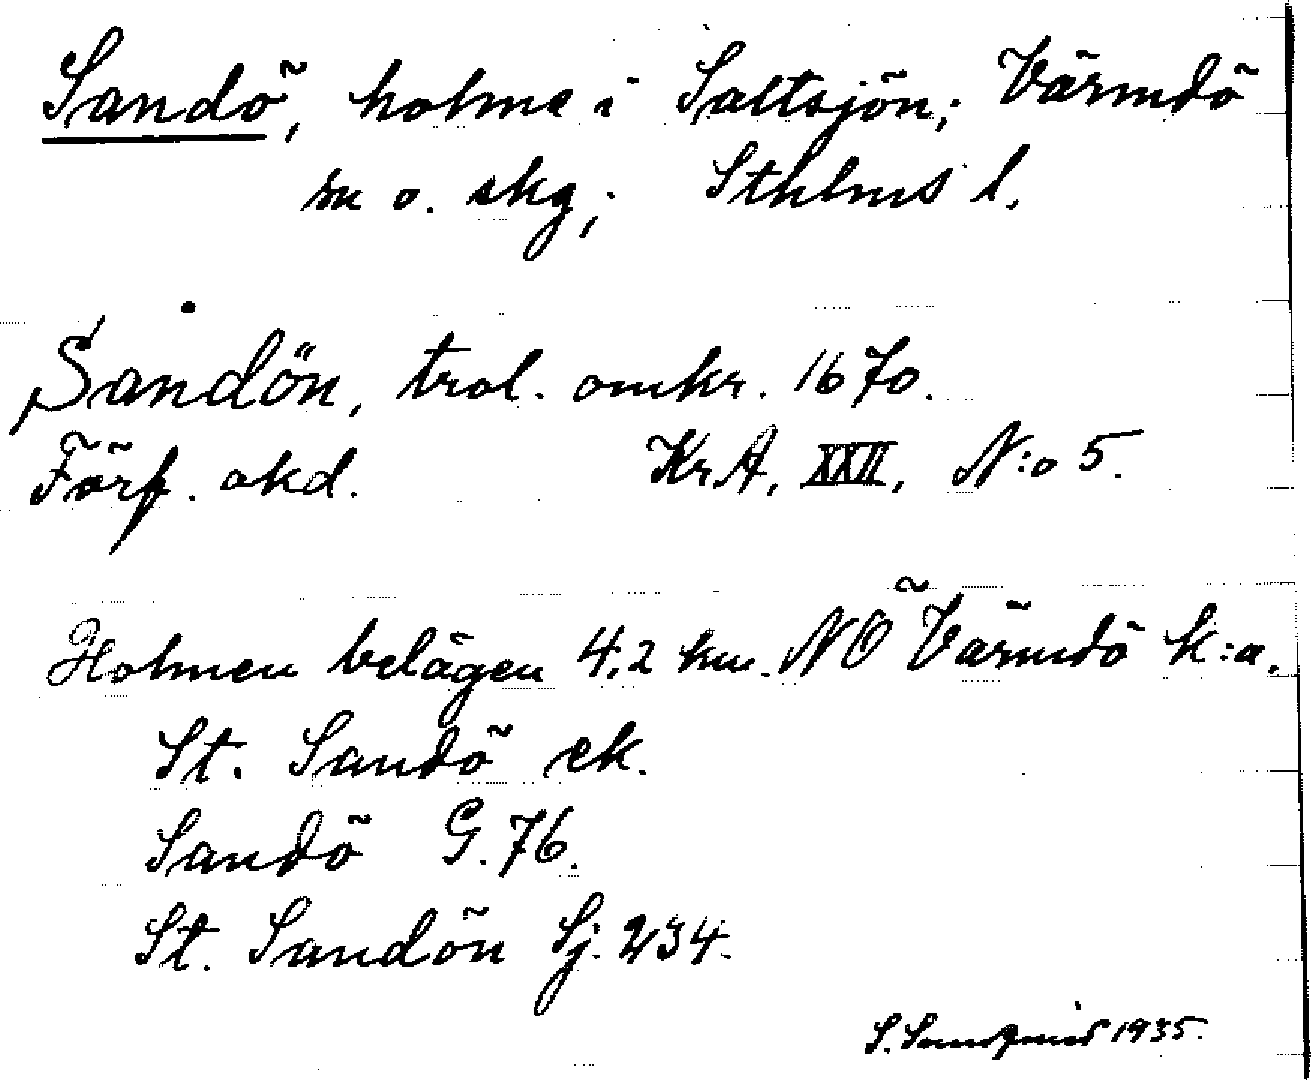 Sandö, holme i Saltsjön; Värmdö
sn o. skg; Sthlms l.
Sandön, trol. omkr. 1670.
Förf. okd. KrA, XXII, N:o 5.
Holmen belägen 4,2 km. NÖ Värmdö k:a.
St. Sandö ek.
Sandö G. 76.
St. Sandön Sj. 234.
S. 1935.